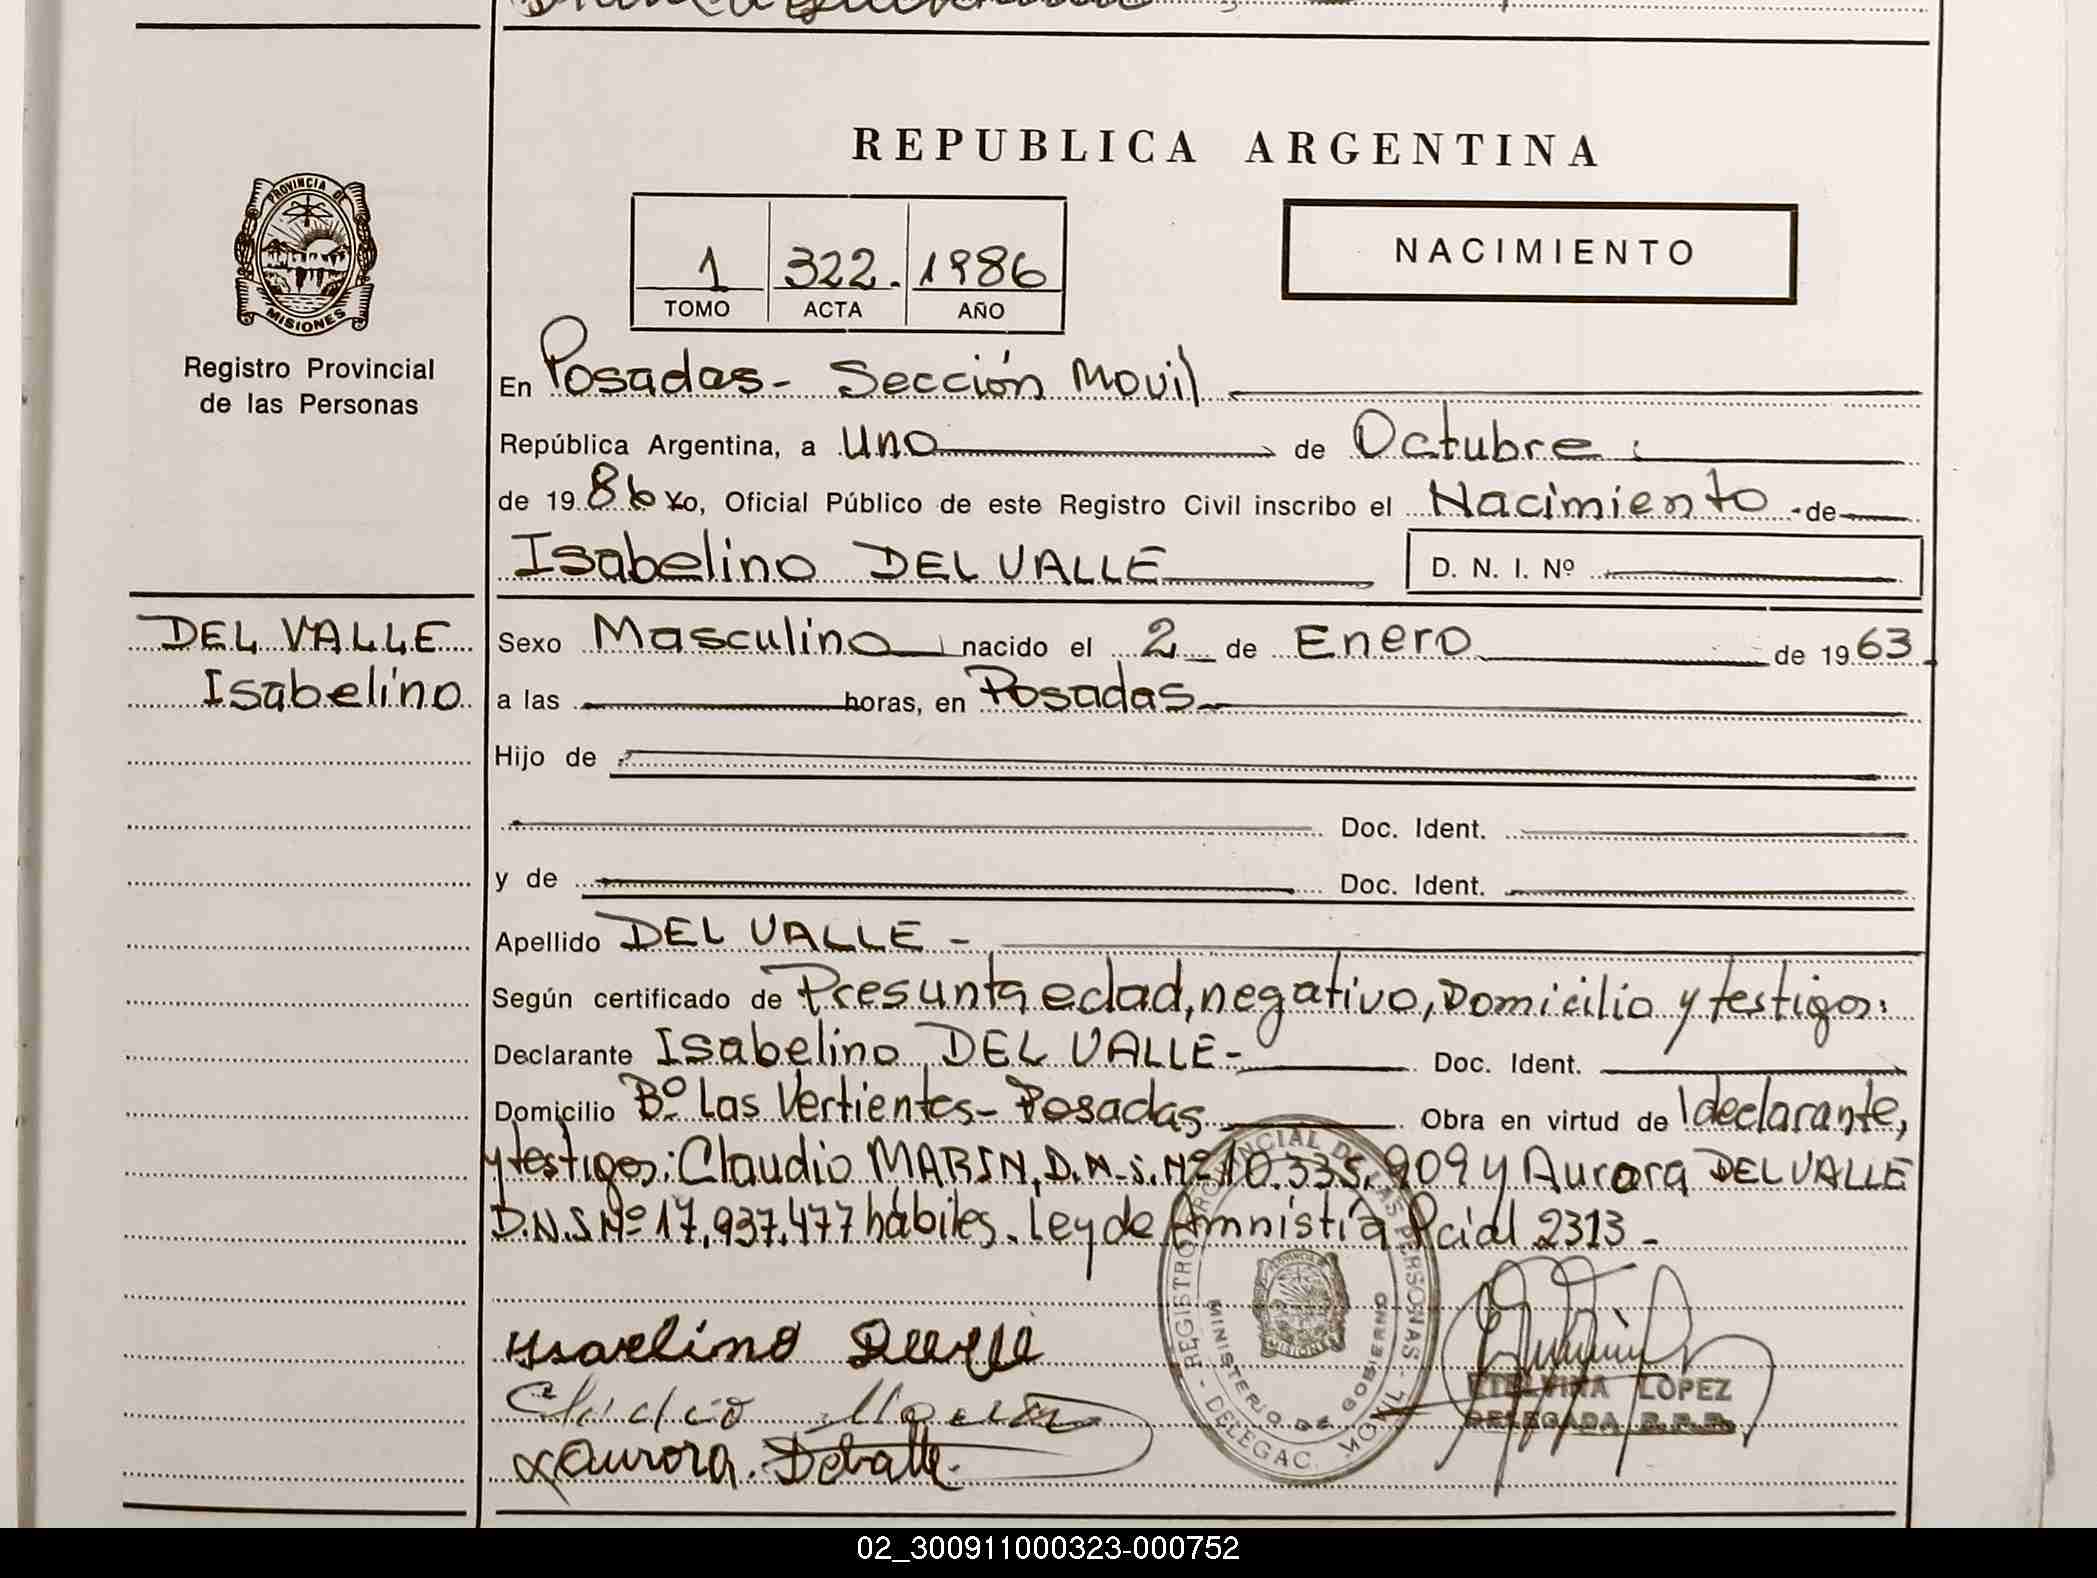 REPUBLICA ARGENTINA
PROVINCIA DE
MISIONES
Registro Provincial
de las Personas
1 322. 1986
TOMO ACTA AÑO
NACIMIENTO
En Posadas - Sección Movil
República Argentina, a uno de Octubre
de 1986 Yo, Oficial Público de este Registro Civil inscribo el Nacimiento -de-
Isabelino DEL VALLE D. N. I. Nº
DEL VALLE
Isabelino
Sexo Masculino nacido el 2 de Enero de 1963
a las horas, en Posadas
Hijo de
Doc. Ident.
y de Doc. Ident.
Apellido DEL VALLE -
Según certificado de Presunta edad, negativo, Domicilio y testigos:
Declarante Isabelino DEL VALLE - Doc. Ident.
Domicilio Bº Las Vertientes - Posadas Obra en virtud de declarante,
y testigos: Claudio MARIN, D.N.I. Nº 10.335.909 y Aurora DEL VALLE
D.N.I Nº 17.937.477 hábiles. Ley de Amnistía Pcial 2313 -
REGISTRO PROVINCIAL DE LAS PERSONAS
MINISTERIO DE GOBIERNO
DELEGAC. MOVIL
Claudio
Aurora
ETELVINA LOPEZ
DELEGADA R.P.P.
02_300911000323-000752